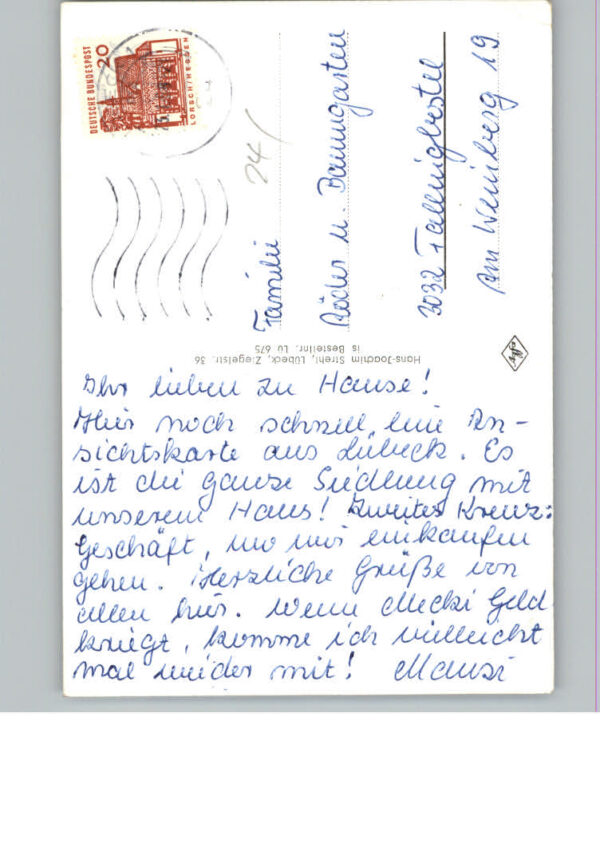 DEUTSCHE BUNDESPOST
20
LORSCH/HESSEN
24/
Familie
Röder u. Baumgarten
3032 Fallingbostel
Am Weinberg 19
Hans-Joachim Strehl, Lübeck, Ziegelstr. 36
is Bestellnr. Lü 675
Ihr lieben zu Hause!
Hier noch schnell eine An-
sichtskarte aus Lübeck. Es
ist die ganze Siedlung mit
unserem Haus! Zweites Kreuz:
Geschäft, wo wir einkaufen
gehen. Herzliche Grüße von
allen hier. Wenn Mecki Geld
kriegt, komme ich vielleicht
mal wieder mit! Mausi